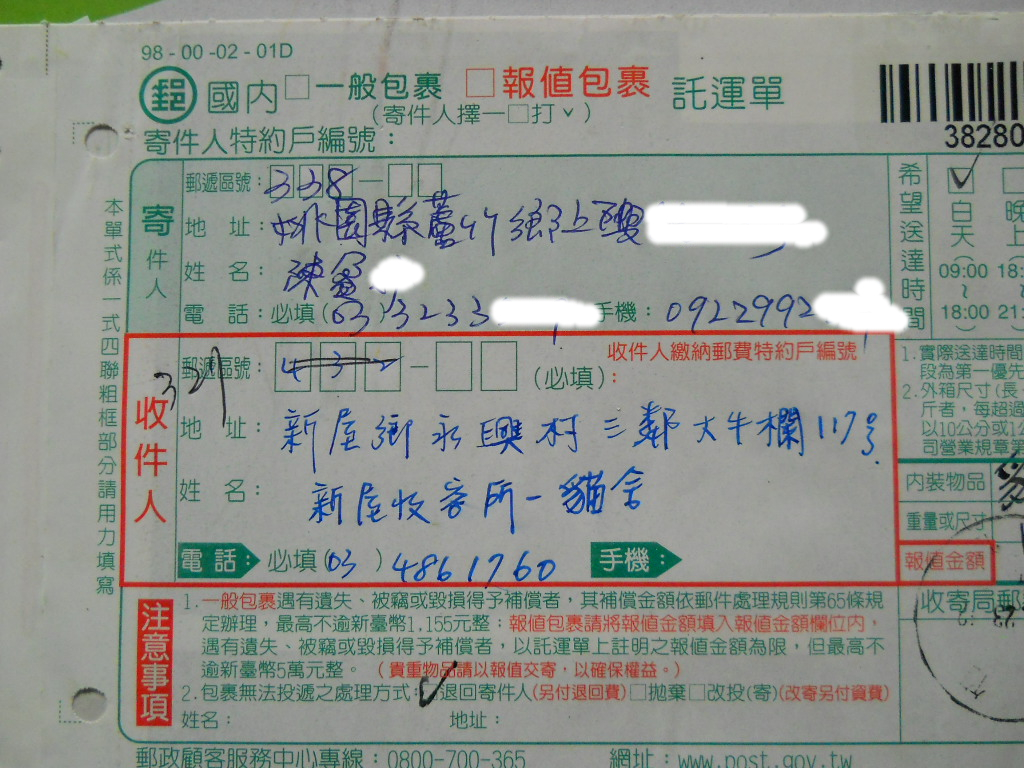 98-00-02-01D
郵 國內 □一般包裹 □報值包裹 託運單
(寄件人擇一□打ˇ)
38280
寄件人特約戶編號：
本單式係一式四聯粗框部分請用力填寫
寄件人
郵遞區號：338-
地址：桃園縣蘆竹鄉上興
姓名：陳
電話：必填(03)3233 手機：0922992
希望送達時間
白天
晚上
09:00 18:
~ ~
18:00 21:
收件人
郵遞區號： 327 -
收件人繳納郵費特約戶編號
(必填)：
地址：新屋鄉永興村三鄰大牛欄117號
姓名：新屋收容所-貓舍
電話：必填(03)4861760 手機：
1.實際送達時間
段為第一優先
2.外箱尺寸(長
斤者，每超過
以10公分或1公
司營業規章第
內裝物品
重量或尺寸
報值金額
收寄局郵
注意事項
1.一般包裹遇有遺失、被竊或毀損得予補償者，其補償金額依郵件處理規則第65條規
定辦理，最高不逾新臺幣1.155元整；報值包裹請將報值金額填入報值金額欄位內，
遇有遺失、被竊或毀損得予補償者，以託運單上註明之報值金額為限，但最高不
逾新臺幣5萬元整。（貴重物品請以報值交寄，以確保權益。）
2.包裹無法投遞之處理方式：☑退回寄件人(另付退回費)□拋棄□改投(寄)(改寄另付資費)
姓名： 地址：
郵政顧客服務中心專線：0800-700-365 網址：www.post.gov.tw